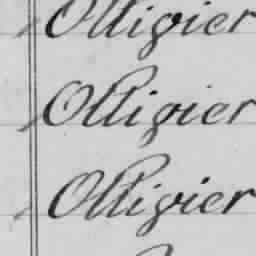 Olligier
Olligier
Olligier